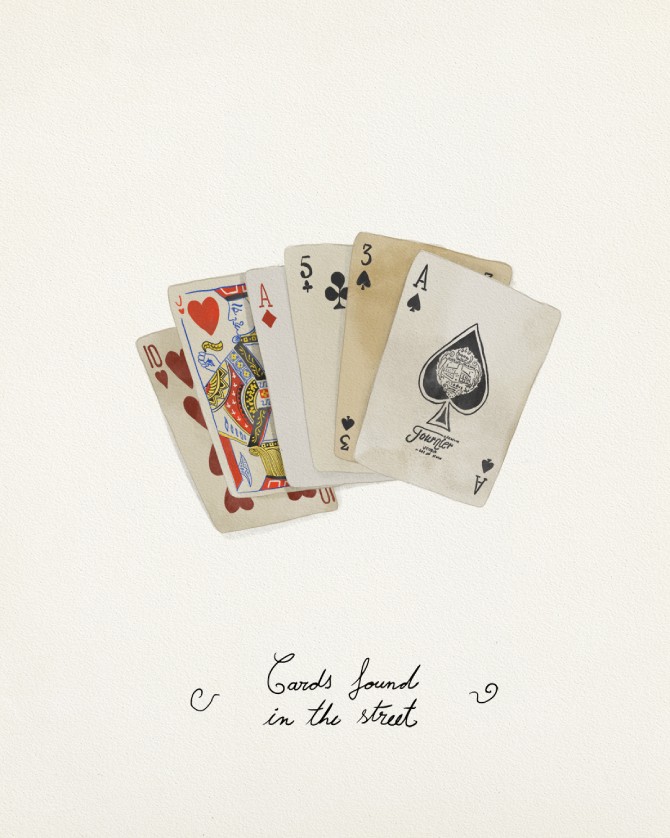 10
J
A
5
3
A
Fournier
3
A
10
Cards found
in the street